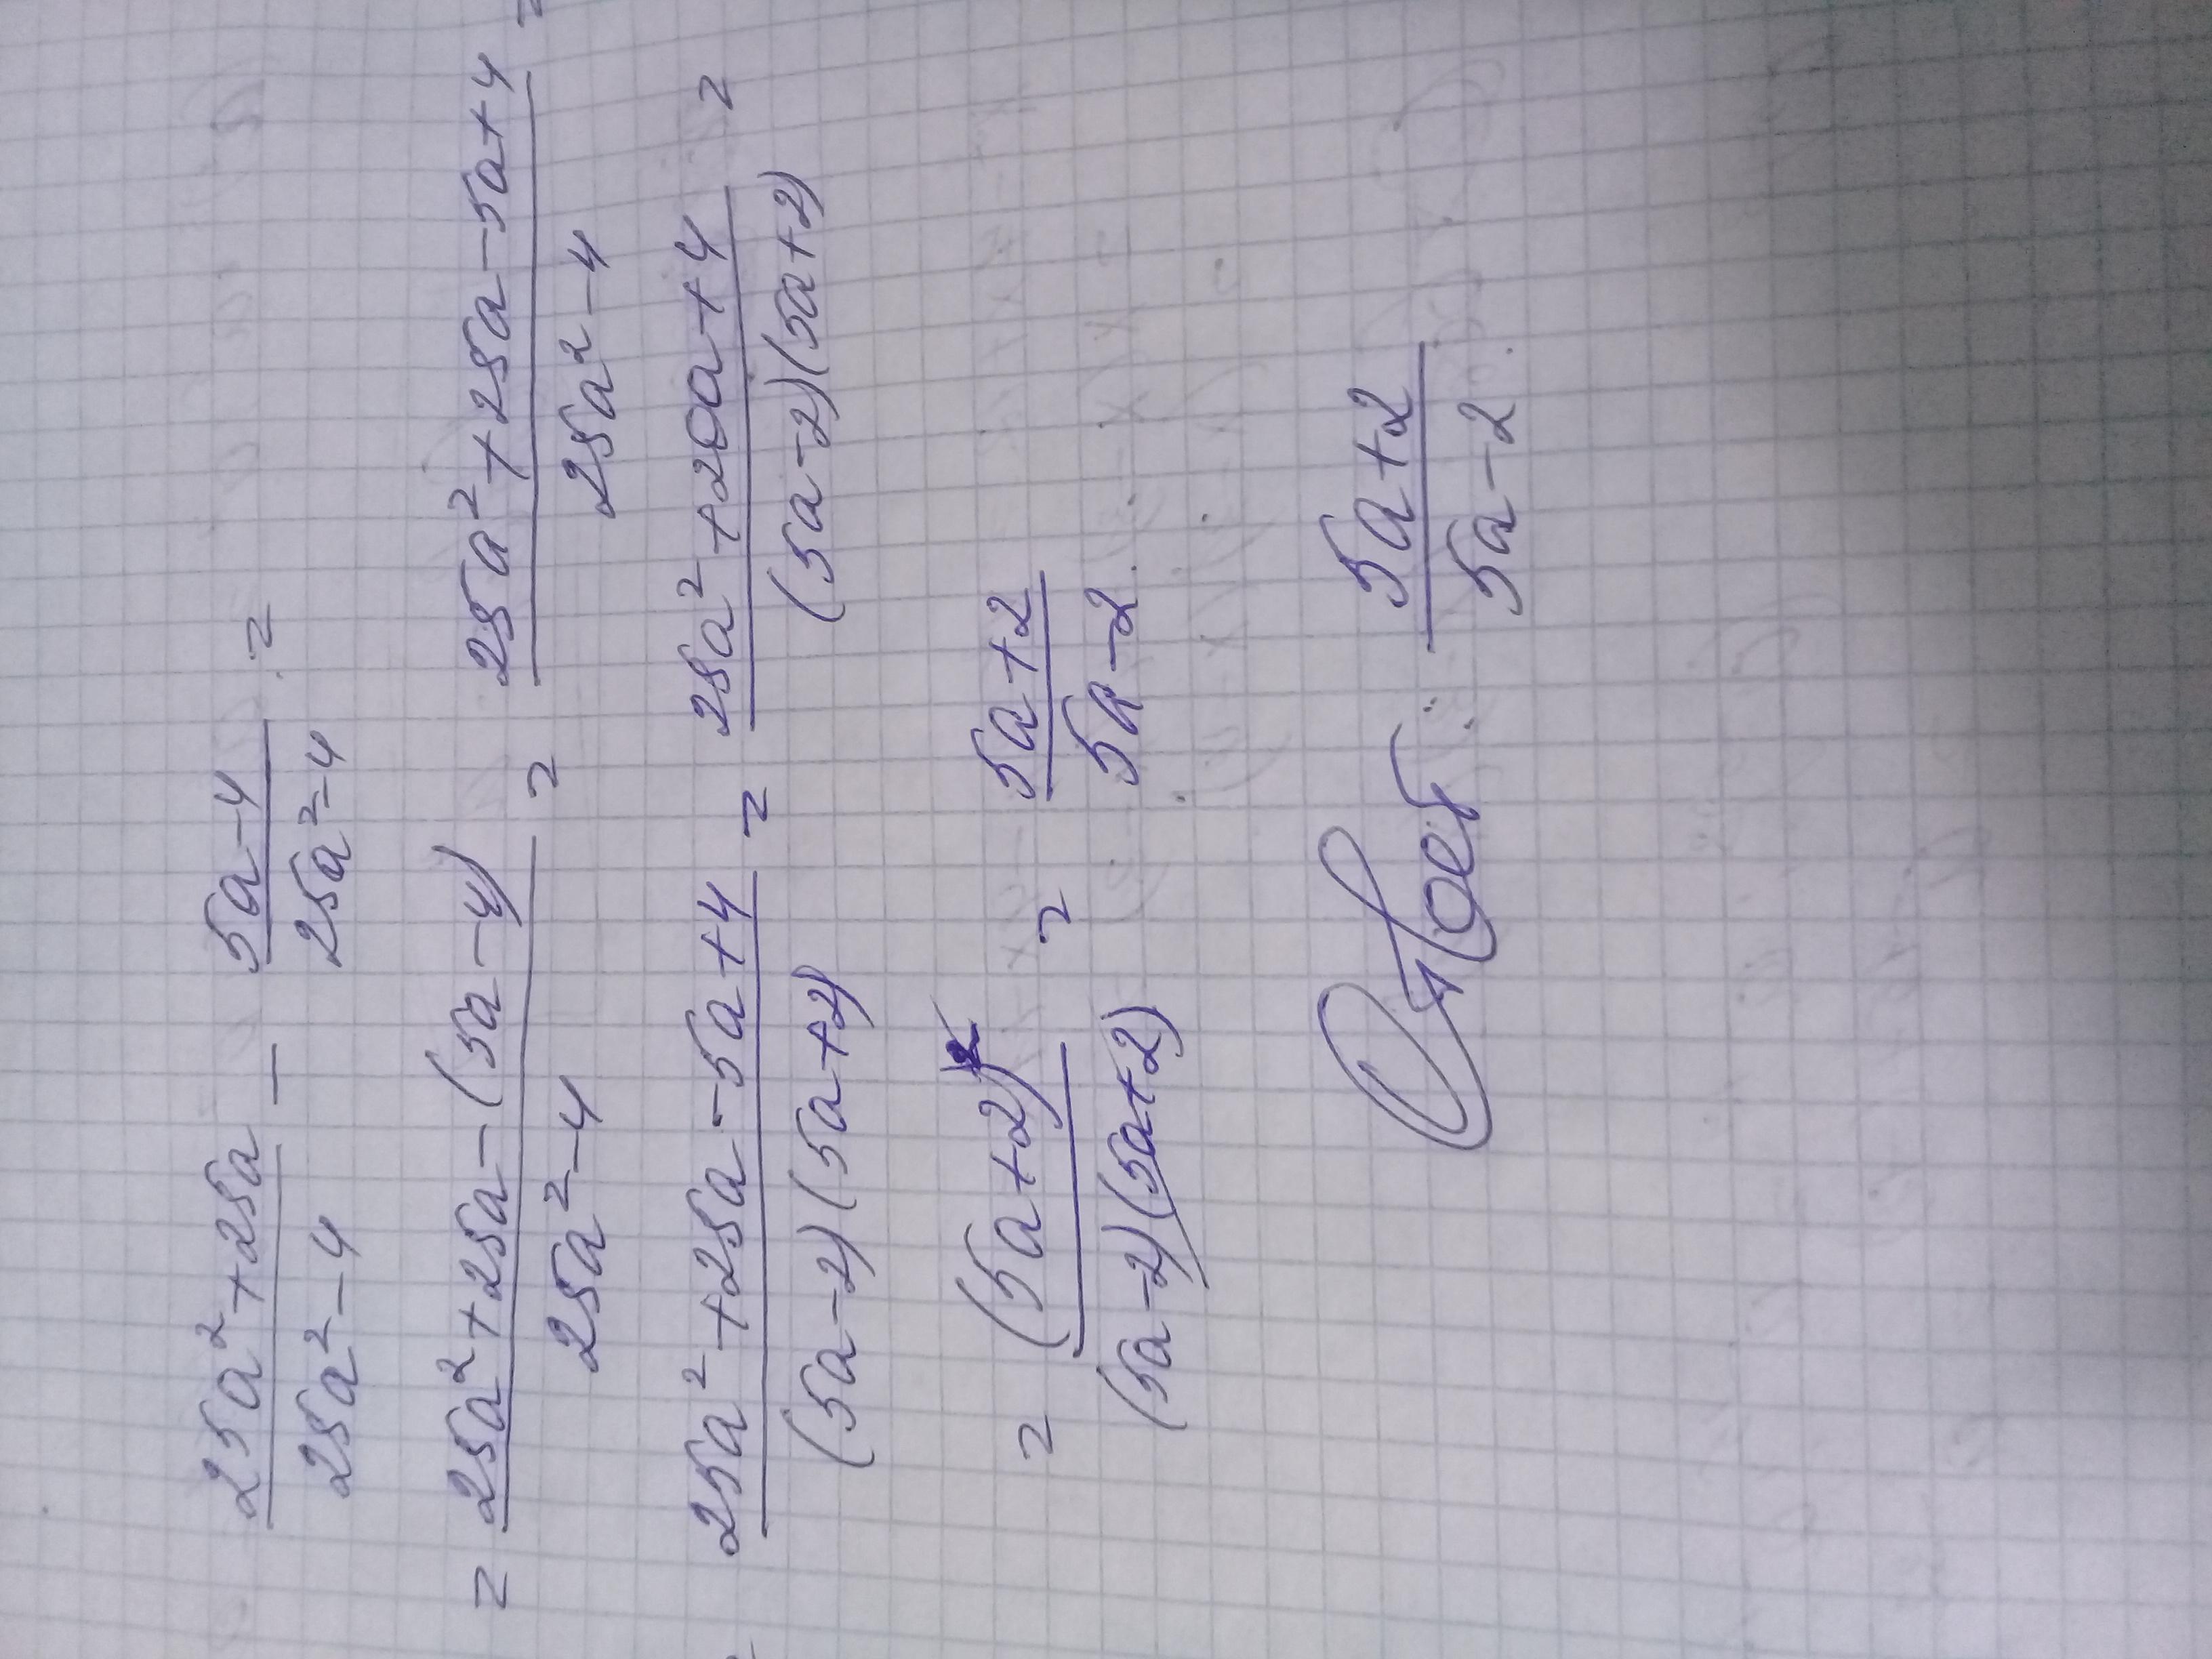 (25a²+25a)/(25a²-4) - (5a-4)/(25a²-4) =
= (25a²+25a-(5a-4))/(25a²-4) = (25a²+25a-5a+4)/(25a²-4) =
= (25a²+25a-5a+4)/((5a-2)(5a+2)) = (25a²+20a+4)/((5a-2)(5a+2)) =
= (5a+2)²/((5a-2)(5a+2)) = (5a+2)/(5a-2)
Ответ: (5a+2)/(5a-2).